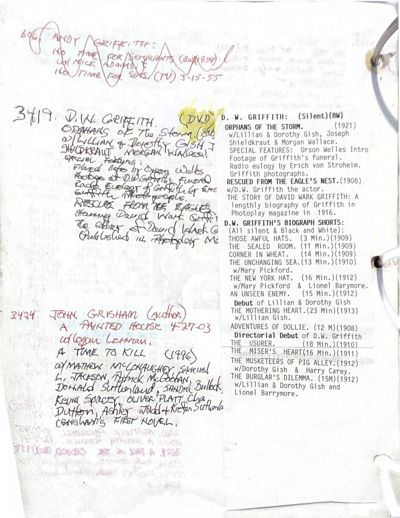 ANDY GRIFFITH:
NO TIME FOR SERGEANTS (BW)(1958)
W/NICK ADAMS, &
NO TIME FOR SGTS (TV) 3-15-55
3419. D.W. GRIFFITH (DVD)
ORPHANS OF THE STORM (BW)
W/LILLIAN & DOROTHY GISH, J
SHILDKRAUT MORGAN WALLACE.
Special Features:
RESCUED FROM THE EAGLES
3424. JOHN GRISHAM (author)
A PAINTED HOUSE 4-27-03
w/Logan Lerman.
A TIME TO KILL (1996)
W/MATHEW McCONAUGHEY, SAMUEL
L. JACKSON, PATRICK McGOOHAN,
DONALD SUTHERLAND, SANDRA BULLOCK,
KEVIN SPACEY, OLIVER PLATT, Chas.
Dutton, Ashley Judd & Kiefer Sutherland
GRISHAM'S FIRST NOVEL.
D. W. GRIFFITH: (Silent)(BW)
ORPHANS OF THE STORM. (1921)
w/Lillian & Dorothy Gish, Joseph
Shieldkraut & Morgan Wallace.
SPECIAL FEATURES: Orson Welles Intro
Footage of Griffith's funeral.
Radio eulogy by Erich von Stroheim.
Griffith photographs.
RESCUED FROM THE EAGLE'S NEST.(1908)
w/D.W. Griffith the actor.
THE STORY OF DAVID WARK GRIFFITH: A
lengthly biography of Griffith in
Photoplay magazine in 1916.
D.W. GRIFFITH'S BIOGRAPH SHORTS:
(All silent & Black and White):
THOSE AWFUL HATS. (3 Min.)(1909)
THE SEALED ROOM. (11 Min.)(1909)
CORNER IN WHEAT. (14 Min.)(1909)
THE UNCHANGING SEA.(13 Min.)(1910)
w/Mary Pickford.
THE NEW YORK HAT. (16 Min.)(1912)
w/Mary Pickford & Lionel Barymore.
AN UNSEEN ENEMY. (15 Min.)(1912)
Debut of Lillian & Dorothy Gish
THE MOTHERING HEART.(23 Min)(1913)
w/Lillian Gish.
ADVENTURES OF DOLLIE. (12 M)(1908)
Directorial Debut of D.W. Griffith
THE USURER. (18 Min.)(1910)
THE MISER'S HEART(16 Min.)(1911)
THE MUSKETEERS OF PIG ALLEY.(1912)
w/Dorothy Gish & Harry Carey.
THE BURGLAR'S DILEMMA. (15M)(1912)
w/Lillian & Dorothy Gish and
Lionel Barrymore.